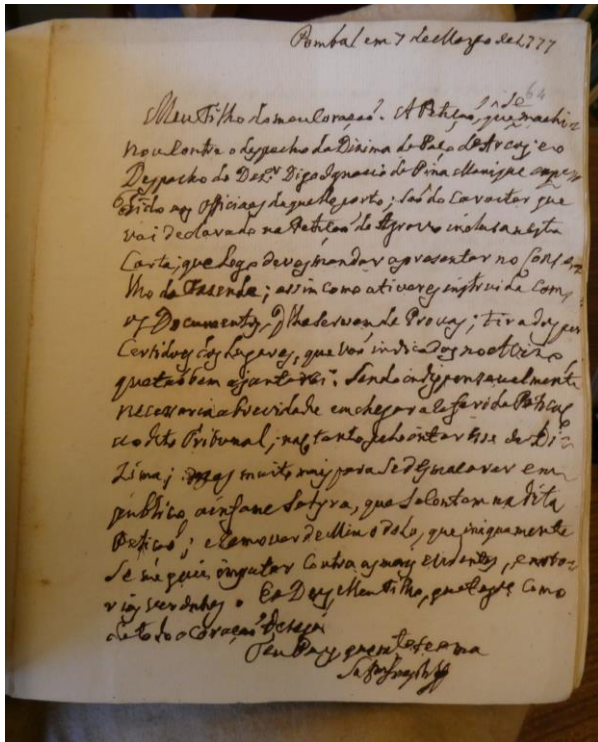 Pombal em 7 de Março de 1777
64
Meu Filho do meu Coração. A Petição, que se machi=
nou contra o despacho da Dizima do Paço de Arcos; e o
Despacho do Dez.or Diogo Ignacio de Pina Manique
aos Officiaes daquelle porto; saõ do Caracter que
vai declarado na Petiçaõ de Agravo inclusa nesta
Carta; que logo deves mandar aprezentar no Conse=
lho da Fazenda; assim como a tiveres instruida com
os Documentos, q̃ lhe servem de Provas; tirados por
Certidoẽs dos Lugares, que vaõ indicados
que tambem ajuntarei. Sendo indispensavelmente
necessaria a brevidade em chegar a referida Petiçaõ
ao dito Tribunal; naõ tanto pelo interesse da Di=
zima; mas muito mais para se desmacarar em
público a infame Satyra, que se contem na dita
Petiçaõ; e remover de Mim o dolo, que iniquamente
se me quis imputar contra as mais evidentes, e noto=
rias verdades. Ea Deos Meu Filho, que te gde como
de todo o Coração dezeja
Teu Pay que m.to te ama